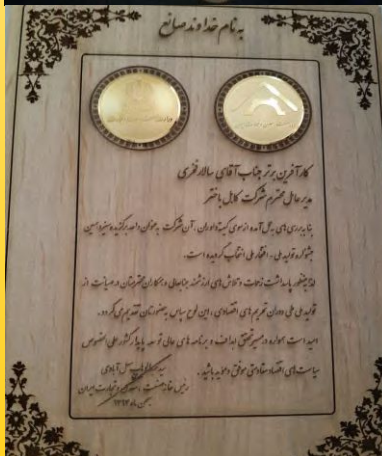 به نام خداوند صانع
کارآفرین برتر جناب آقای سالار فخری
مدیر عامل محترم شرکت کابل باختر
بنا به بررسی های به عمل آمده از سوی کمیته داوران، آن شرکت به عنوان واحد برگزیده سیزدهمین
جشنواره تولید ملی - افتخار ملی انتخاب گردیده است.
لذا بمنظور پاسداشت زحمات و تلاش های ارزشمند جنابعالی و همکاران محترمتان در صیانت از
تولید ملی طی دوران تحریم های اقتصادی، این لوح سپاس به حضورتان تقدیم می گردد.
امید است همواره در مسیر تحقق اهداف و برنامه های عالی توسعه پایدار کشور علی الخصوص
سیاست های اقتصاد مقاومتی موفق و موید باشید.
سید سهل آبادی
رئیس خانه صنعت، معدن و تجارت ایران
بهمن ماه ۱۳۹۴